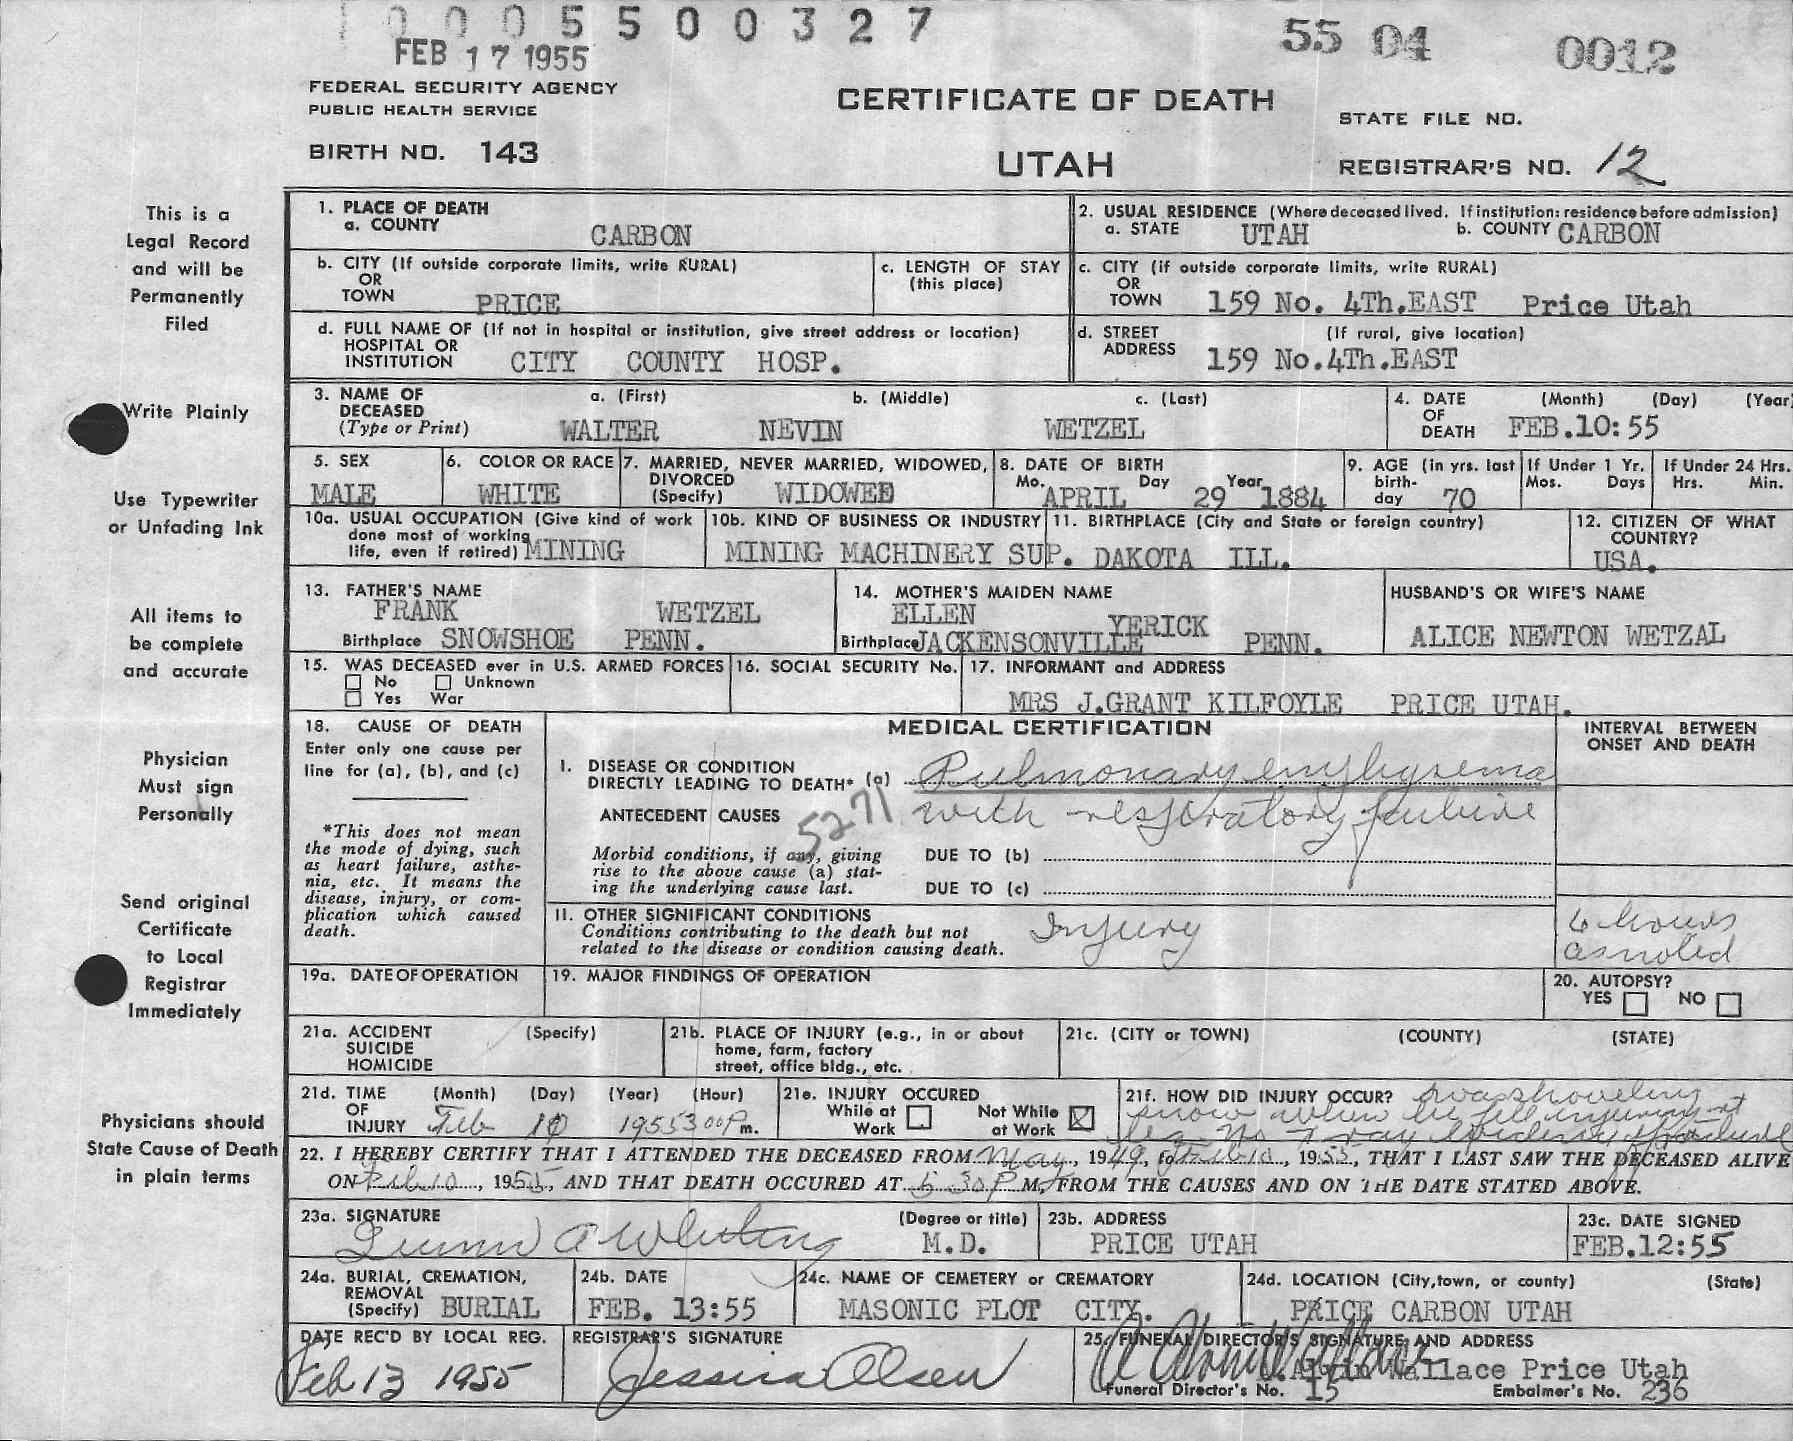 10005500327
FEB 17 1955
55 04 0012
FEDERAL SECURITY AGENCY
PUBLIC HEALTH SERVICE
CERTIFICATE OF DEATH
STATE FILE NO.
BIRTH NO. 143
UTAH
REGISTRAR'S NO. 12
This is a
Legal Record
and will be
Permanently
Filed
Write Plainly
Use Typewriter
or Unfading Ink
All items to
be complete
and accurate
Physician
Must sign
Personally
Send original
Certificate
to Local
Registrar
Immediately
Physicians should
State Cause of Death
in plain terms
1. PLACE OF DEATH
a. COUNTY CARBON
2. USUAL RESIDENCE (Where deceased lived. If institution: residence before admission)
a. STATE UTAH b. COUNTY CARBON
b. CITY (If outside corporate limits, write RURAL)
OR
TOWN PRICE
c. LENGTH OF STAY
(this place)
c. CITY (if outside corporate limits, write RURAL)
OR
TOWN 159 No. 4Th.EAST Price Utah
d. FULL NAME OF (If not in hospital or institution, give street address or location)
HOSPITAL OR
INSTITUTION CITY COUNTY HOSP.
d. STREET (If rural, give location)
ADDRESS 159 No.4Th.EAST
3. NAME OF a. (First) b. (Middle) c. (Last)
DECEASED
(Type or Print) WALTER NEVIN WETZEL
4. DATE (Month) (Day) (Year)
OF
DEATH FEB.10:55
5. SEX
MALE
6. COLOR OR RACE
WHITE
7. MARRIED, NEVER MARRIED, WIDOWED,
DIVORCED
(Specify) WIDOWED
8. DATE OF BIRTH
Mo. Day Year
APRIL 29 1884
9. AGE (in yrs. last
birth-
day 70
If Under 1 Yr.
Mos. Days
If Under 24 Hrs.
Hrs. Min.
10a. USUAL OCCUPATION (Give kind of work
done most of working
life, even if retired) MINING
10b. KIND OF BUSINESS OR INDUSTRY
MINING MACHINERY SUP.
11. BIRTHPLACE (City and State or foreign country)
DAKOTA ILL.
12. CITIZEN OF WHAT
COUNTRY?
USA.
13. FATHER'S NAME
FRANK WETZEL
Birthplace SNOWSHOE PENN.
14. MOTHER'S MAIDEN NAME
ELLEN YERICK
Birthplace JACKENSONVILLE PENN.
HUSBAND'S OR WIFE'S NAME
ALICE NEWTON WETZAL
15. WAS DECEASED ever in U.S. ARMED FORCES
No Unknown
Yes War
16. SOCIAL SECURITY No.
17. INFORMANT and ADDRESS
MRS J.GRANT KILFOYLE PRICE UTAH.
18. CAUSE OF DEATH
Enter only one cause per
line for (a), (b), and (c)
*This does not mean
the mode of dying, such
as heart failure, asthe-
nia, etc. It means the
disease, injury, or com-
plication which caused
death.
MEDICAL CERTIFICATION
INTERVAL BETWEEN
ONSET AND DEATH
I. DISEASE OR CONDITION
DIRECTLY LEADING TO DEATH* (a) Pulmonary emphysema
ANTECEDENT CAUSES 5271 with respiratory failure
Morbid conditions, if any, giving
rise to the above cause (a) stat-
ing the underlying cause last.
DUE TO (b)
DUE TO (c)
II. OTHER SIGNIFICANT CONDITIONS
Conditions contributing to the death but not
related to the disease or condition causing death.
Injury
6 hours
as noted
19a. DATE OF OPERATION
19. MAJOR FINDINGS OF OPERATION
20. AUTOPSY?
YES NO
21a. ACCIDENT (Specify)
SUICIDE
HOMICIDE
21b. PLACE OF INJURY (e.g., in or about
home, farm, factory
street, office bldg., etc.
21c. (CITY or TOWN) (COUNTY) (STATE)
21d. TIME (Month) (Day) (Year) (Hour)
OF
INJURY Feb 10 1955 3 00 P m.
21e. INJURY OCCURED
While at Work
Not While at Work
21f. HOW DID INJURY OCCUR? was shoveling
snow when he fell injuring rt
leg no X ray evidence of fracture
22. I HEREBY CERTIFY THAT I ATTENDED THE DECEASED FROM May, 1949, to Feb 10, 1955, THAT I LAST SAW THE DECEASED ALIVE
ON Feb 10, 1955, AND THAT DEATH OCCURED AT 5 30 P M, FROM THE CAUSES AND ON THE DATE STATED ABOVE.
23a. SIGNATURE (Degree or title)
Whiting M.D.
23b. ADDRESS
PRICE UTAH
23c. DATE SIGNED
FEB.12:55
24a. BURIAL, CREMATION,
REMOVAL
(Specify) BURIAL
24b. DATE
FEB. 13:55
24c. NAME OF CEMETERY or CREMATORY
MASONIC PLOT CITY.
24d. LOCATION (City,town, or county) (State)
PRICE CARBON UTAH
DATE REC'D BY LOCAL REG.
Feb 13 1955
REGISTRAR'S SIGNATURE
Jessica Olsen
25. FUNERAL DIRECTOR'S SIGNATURE AND ADDRESS
Wallace Price Utah
Funeral Director's No. 15 Embalmer's No. 236